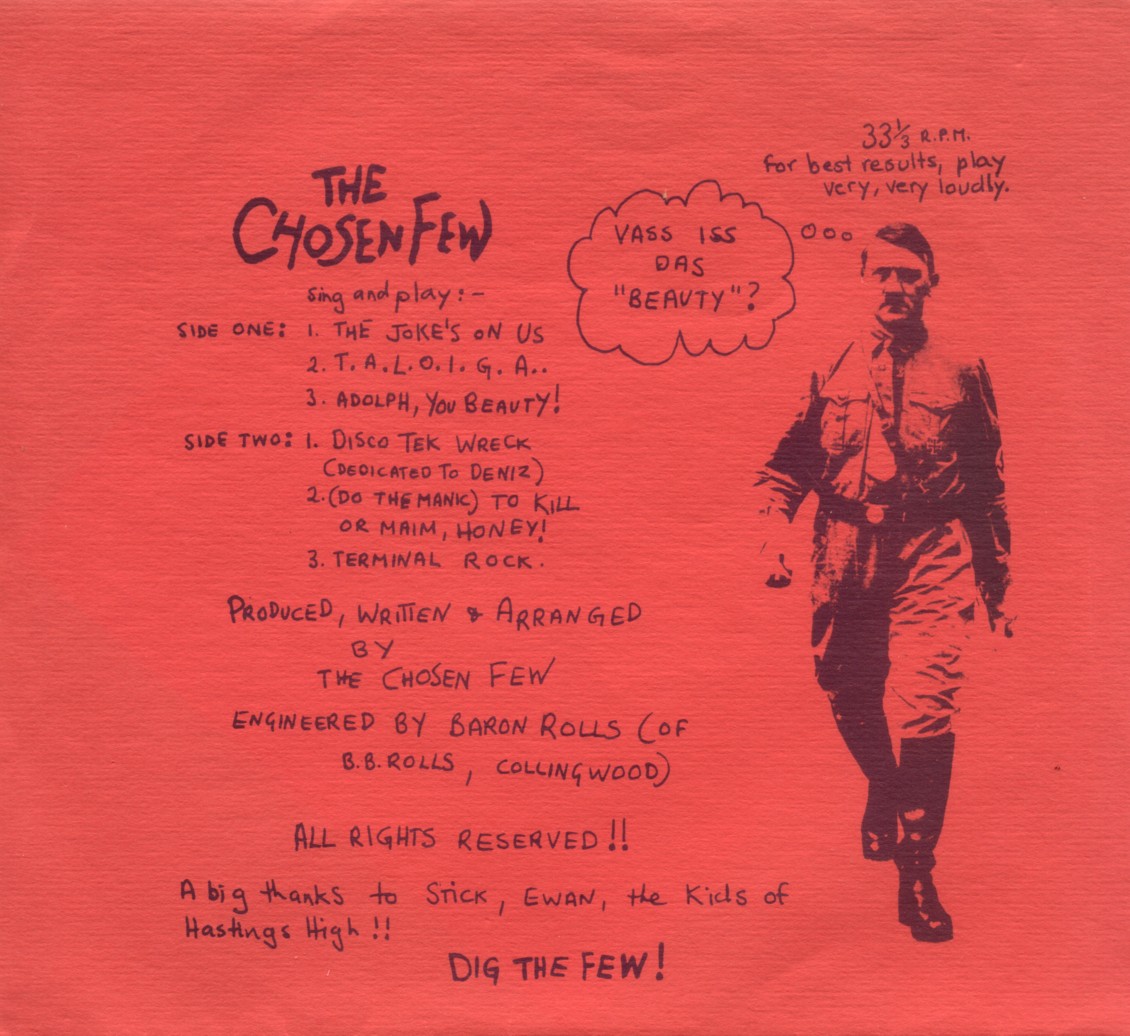 33⅓ R.P.M.
for best results, play
very, very loudly.
THE
CHOSEN FEW
sing and play:-
SIDE ONE: 1. THE JOKE'S ON US
2. T.A.L.O.I.G.A..
3. ADOLPH, YOU BEAUTY!
SIDE TWO: 1. DISCO TEK WRECK
(DEDICATED TO DENIZ)
2. (DO THE MANIC) TO KILL
OR MAIM, HONEY!
3. TERMINAL ROCK.
VASS ISS
DAS
"BEAUTY"?
PRODUCED, WRITTEN & ARRANGED
BY
THE CHOSEN FEW
ENGINEERED BY BARON ROLLS (OF
B.B. ROLLS, COLLINGWOOD)
ALL RIGHTS RESERVED!!
A big thanks to Stick, EWAN, the Kids of
Hastings High!!
DIG THE FEW!